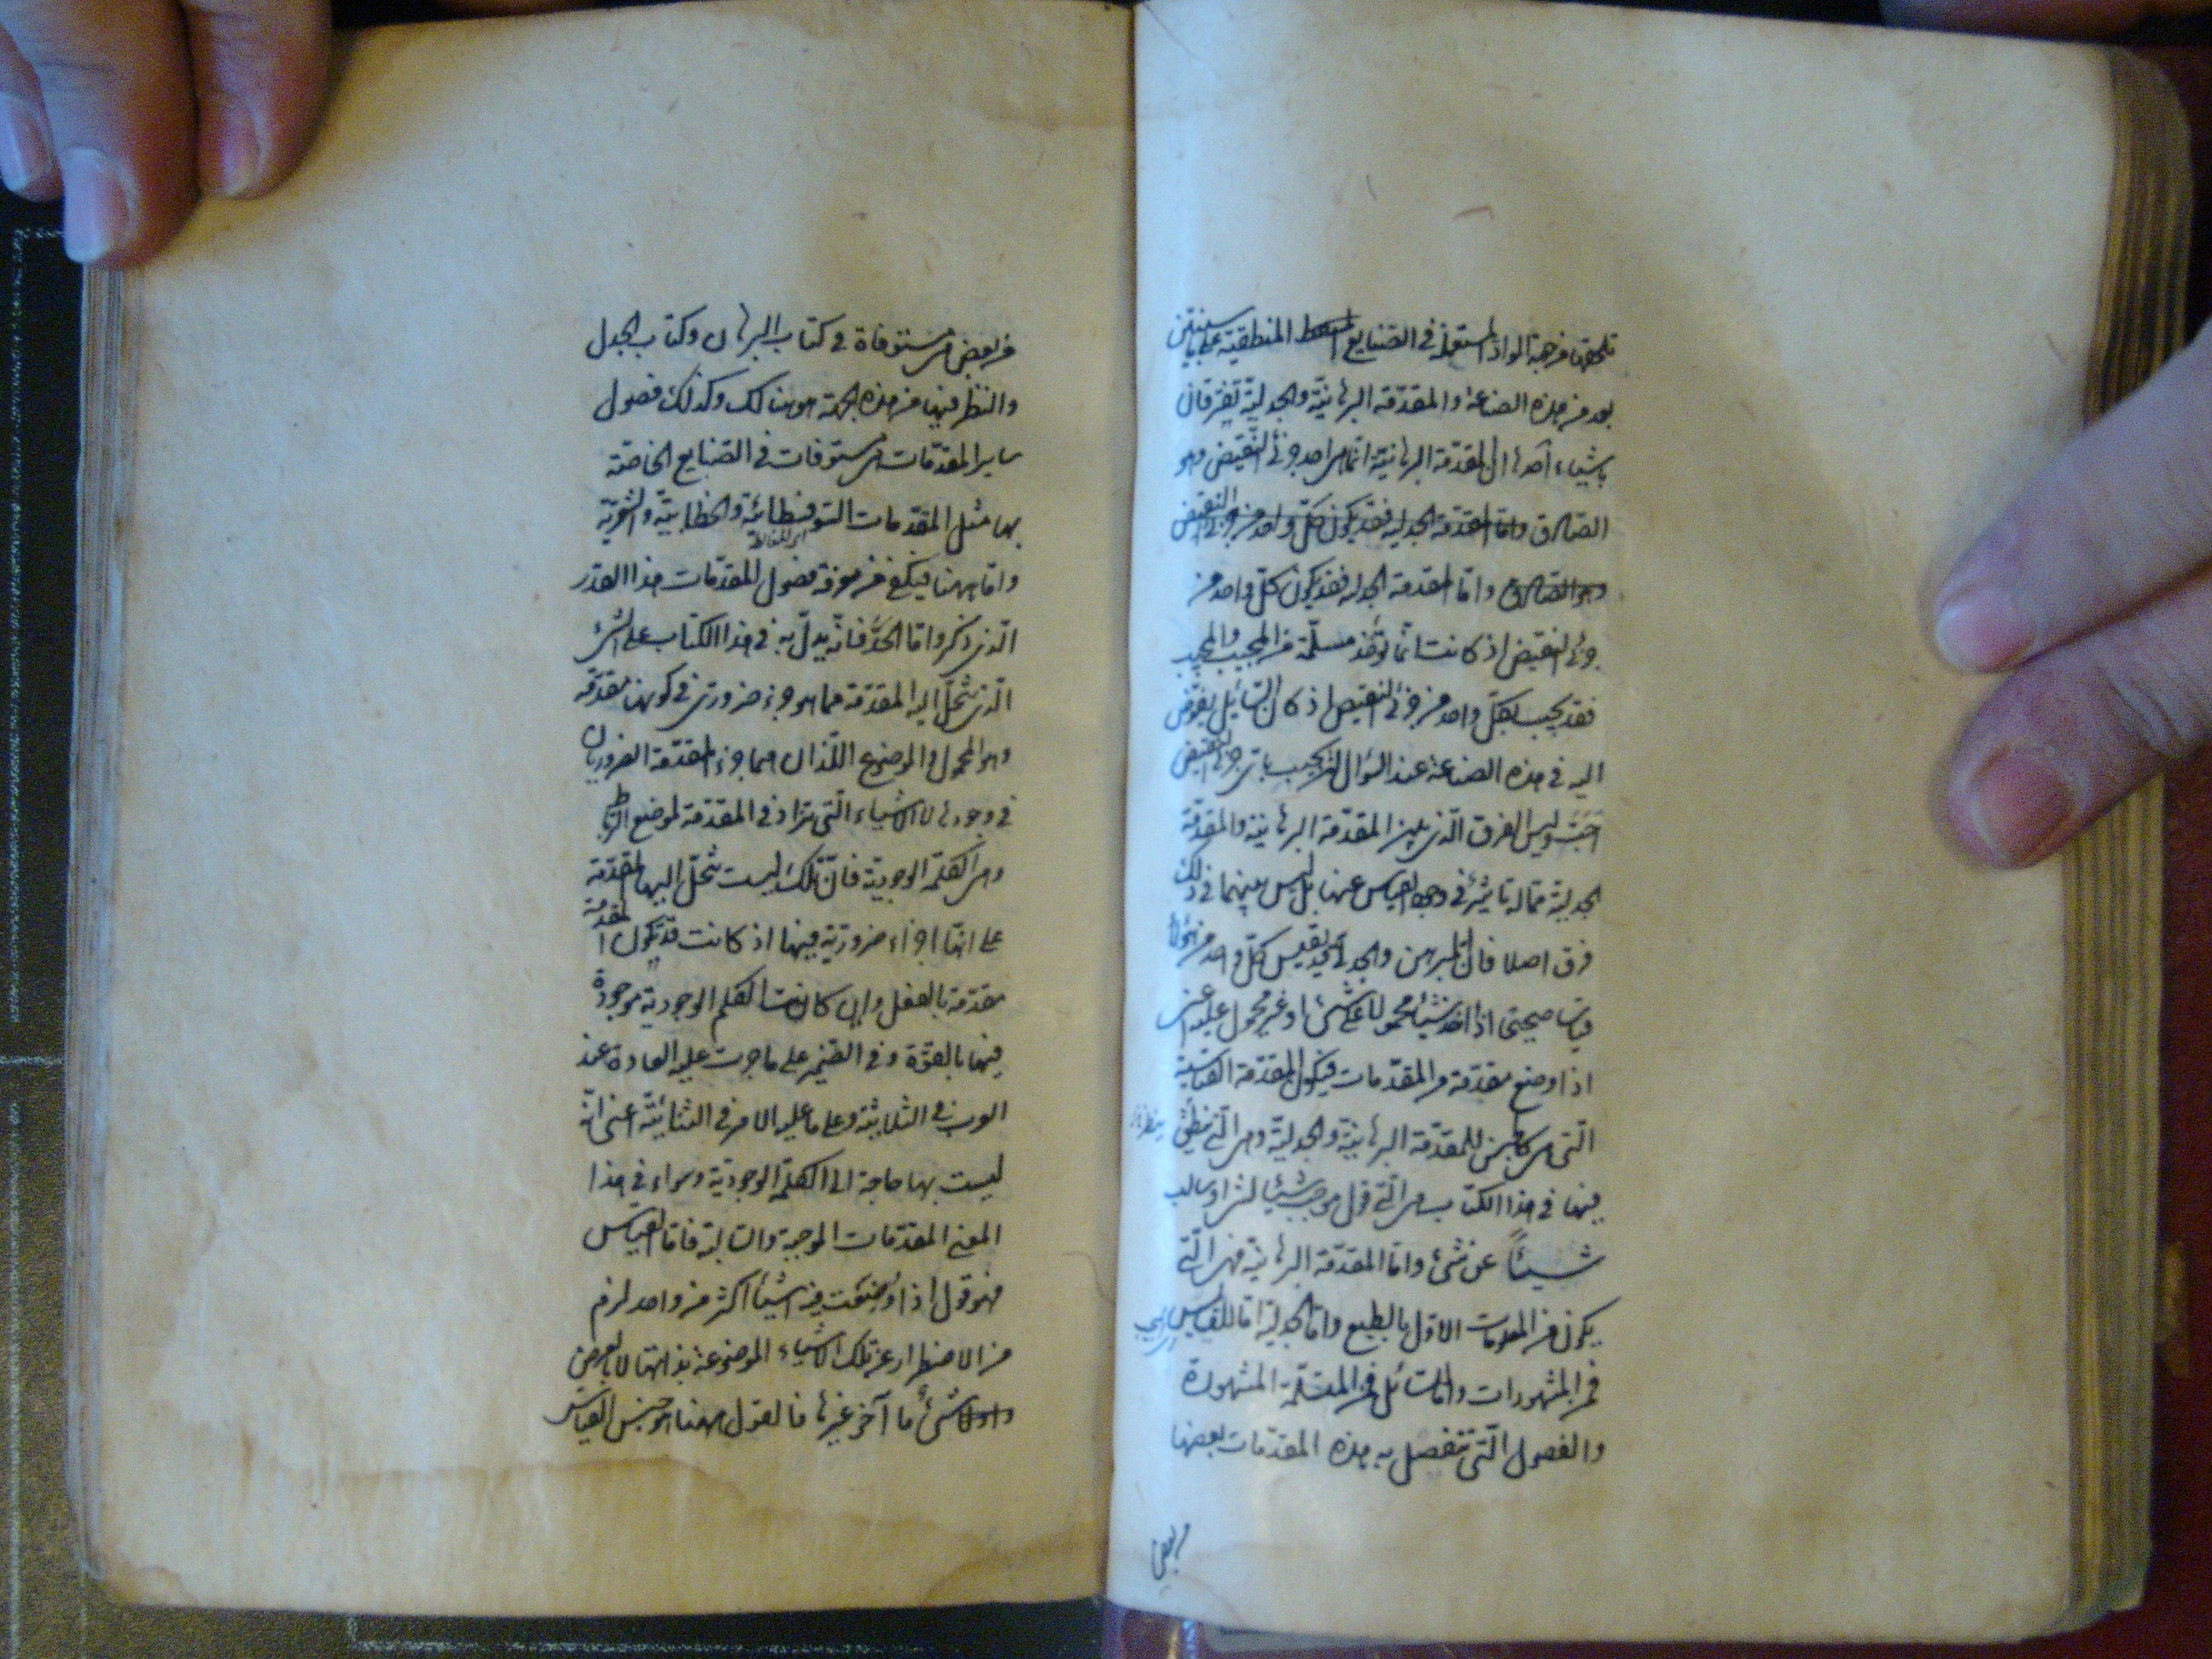 تلحقها من جهة المواد المستعملة في الصنايع المنطقية على ما سيتبين
بعد من هذه الصناعة والمقدمة البرهانية والجدلية تفترقان
باشياء احدها ان المقدمة البرهانية انما هي احد جزئي النقيض وهو
الصادق واما المقدمة الجدلية فقد يكون كل واحد من جزئي النقيض
وهو الصادق واما المقدمة الجدلية فقد يكون كل واحد من
جزئي النقيض اذ كانت انما توخذ مسلمة من المجيب والمجيب
فقد يجيب بكل واحد من جزئي النقيض اذ كان السائل يفوض
اليه في هذه الصناعة عند السؤال ان يجيب باي جزئي النقيض
احب وليس الفرق الذي بين المقدمة البرهانية والمقدمة
الجدلية مما له تاثير في وجه القياس عنها بل ليس بينهما في ذلك
فرق اصلا فان المبرهن والجدلي يقيس كل واحد من هؤلاء
قياسا صحيحا اذا اخذ شيئا محمولا على شئ او غير محمول عليه اعني
اذا وضع مقدمة من المقدمات فيكون المقدمة القياسية
التي هي كالجنس للمقدمة البرهانية والجدلية وهي التي ننظر
فيها في هذا الكتاب هي التي قول موجب شيئا لشئ او سالب
شيئا عن شئ واما المقدمة البرهانية فهي التي
يكون من المقدمات الاول بالطبع واما الجدلية اما للقايس
فمن المشهورات واما للسائل فمن المتسلمة المشهورة
والفصول التي تنفصل به هذه المقدمات بعضها
من بعض
من بعض هي مستوفاة في كتاب البرهان وكتاب الجدل
والنظر فيها من هذه الجهة هو هنالك وكذلك فصول
ساير المقدمات هي مستوفات في الصنايع الخاصة
بها مثل المقدمات السوفسطائية والخطابية والشعرية
واما ههنا فيكفي من معرفة فصول المقدمات هذا القدر
الذي ذكر واما الحد فانه يدل به في هذا الكتاب على الشئ
الذي تنحل اليه المقدمة مما هو جزء ضروري في كونها مقدمة
وهو المحمول والموضوع اللذان هما جزء المقدمة الضروريان
في وجودها لا الاشياء التي تزاد في المقدمة لموضع الرباط
وهي الكلمة الوجودية فان تلك ليست تنحل اليها المقدمة
على انها اجزاء ضرورية فيها اذ كانت قد تكون المقدمة
مقدمة بالفعل وان كانت الكلم الوجودية موجودة
فيها بالقوة وفي الضمير على ما جرت عليه العادة عند
العرب في الثلاثية وعلى ما عليه الامر في الثنائية اعني انه
ليست بها حاجة الى الكلمة الوجودية وسواء في هذا
المعنى المقدمات الموجبة والسالبة فاما القياس
فهو قول اذا وضعت فيه اشياء اكثر من واحد لزم
من الاضطرار عن تلك الاشياء الموضوعة بذاتها لا بالعرض
شئ ما آخر غيرها فالقول ههنا هو جنس القياس